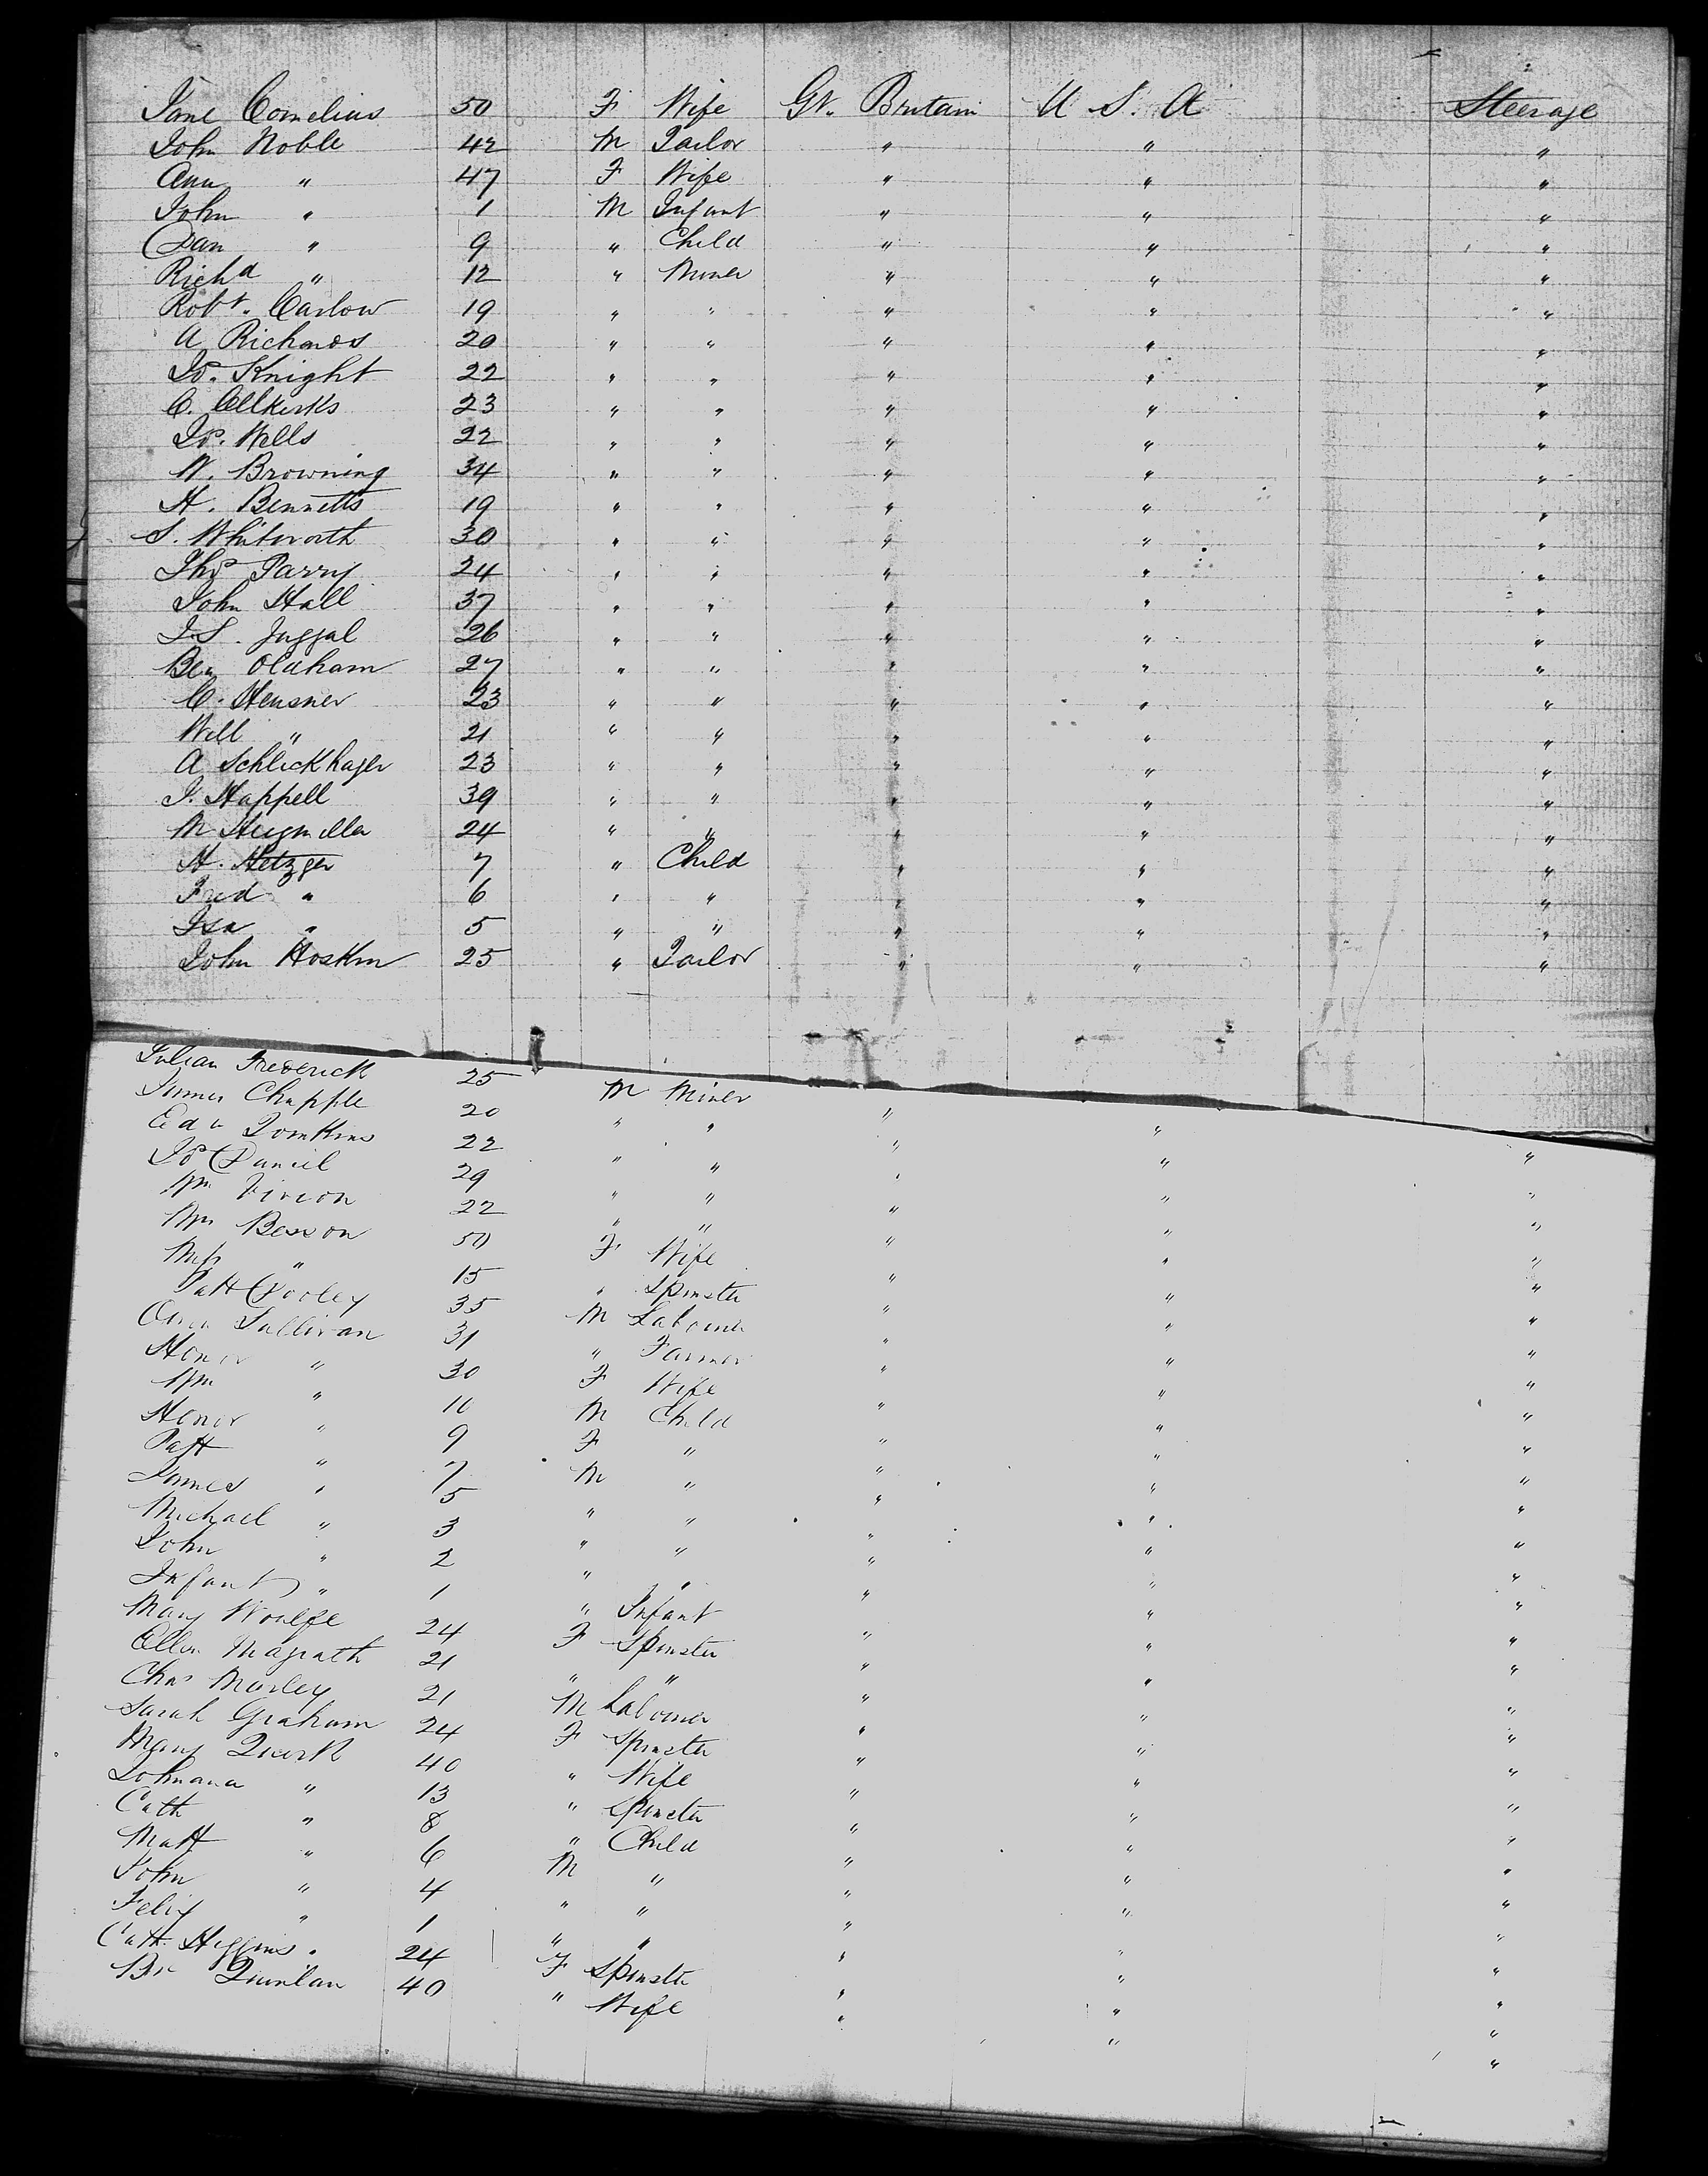 Jane Cornelius 50 F Wife Gt. Britain U S. A Steerage
John Noble 42 M Tailor " " "
Ann " 47 F Wife " " "
John " 1 M Infant " " "
Dan " 9 " Child " " "
Richd " 12 " Miner " " "
Robt. Carlow 19 " " " " "
A Richards 20 " " " " "
Js. Knight 22 " " " " "
C. 23 " " " " "
Js. Wells 22 " " " " "
W. Browning 34 " " " " "
H. Bennetts 19 " " " " "
S. Whitworth 30 " " " " "
Ths Parry 24 " " " " "
John Hall 37 " " " " "
J.S. Jaggal 26 " " " " "
Ben Oldham 27 " " " " "
C. Heusner 23 " " " " "
Will " 21 " " " " "
A Schlickhager 23 " " " " "
J. Happell 39 " " " " "
M 24 " " " " "
H. Hetzger 7 " Child " " "
Fred " 6 " " " " "
Isa " 5 " " " " "
John Hoskin 25 " Tailor " " "
Julian Frederick 25 M Miner " " "
James Chapple 20 " " " " "
Edw Tomkins 22 " " " " "
Js Daniel 29 " " " " "
Wm Vivion 22 " " " " "
Mrs Besson 50 F Wife " " "
Miss " 15 " Spinster " " "
Patt Dooley 35 M Labourer " " "
Sullivan 31 " Farmer " " "
Honor " 30 F Wife " " "
Wm " 10 M Child " " "
Honor " 9 F " " " "
Patt " 7 M " " " "
James " 5 " " " " "
Michael " 3 " " " " "
John " 2 " " " " "
Infant " 1 " Infant " " "
Mary Woulfe 24 F Spinster " " "
Ellen Magrath 21 " " " " "
Chas Morley 21 M Labourer " " "
Sarah Graham 24 F Spinster " " "
Mary Quirk 40 " Wife " " "
Johnana " 13 " Spinster " " "
Cath " 8 " Child " " "
Matt " 6 M " " " "
John " 4 " " " " "
Felix " 1 " " " " "
Cath. Higgins. 24 F Spinster " " "
Br Quinlan 40 " Wife " " "